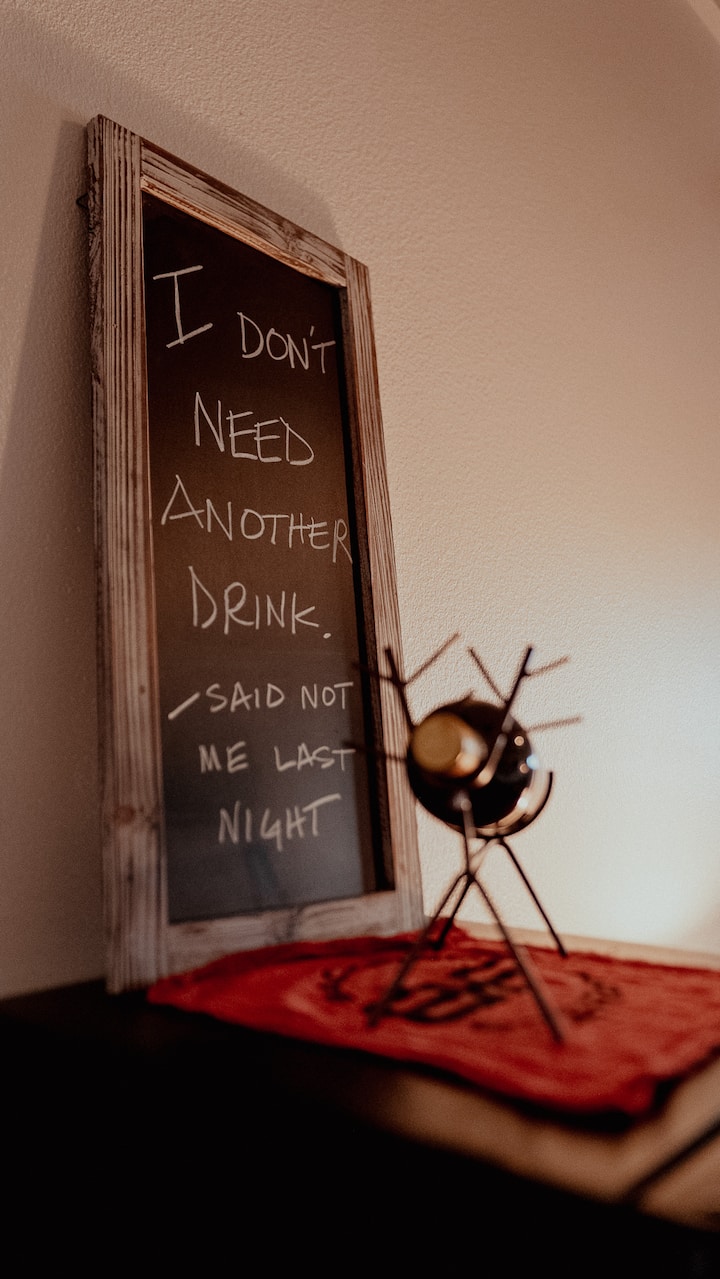 I DON'T
NEED
ANOTHER
DRINK.
-SAID NOT
ME LAST
NIGHT